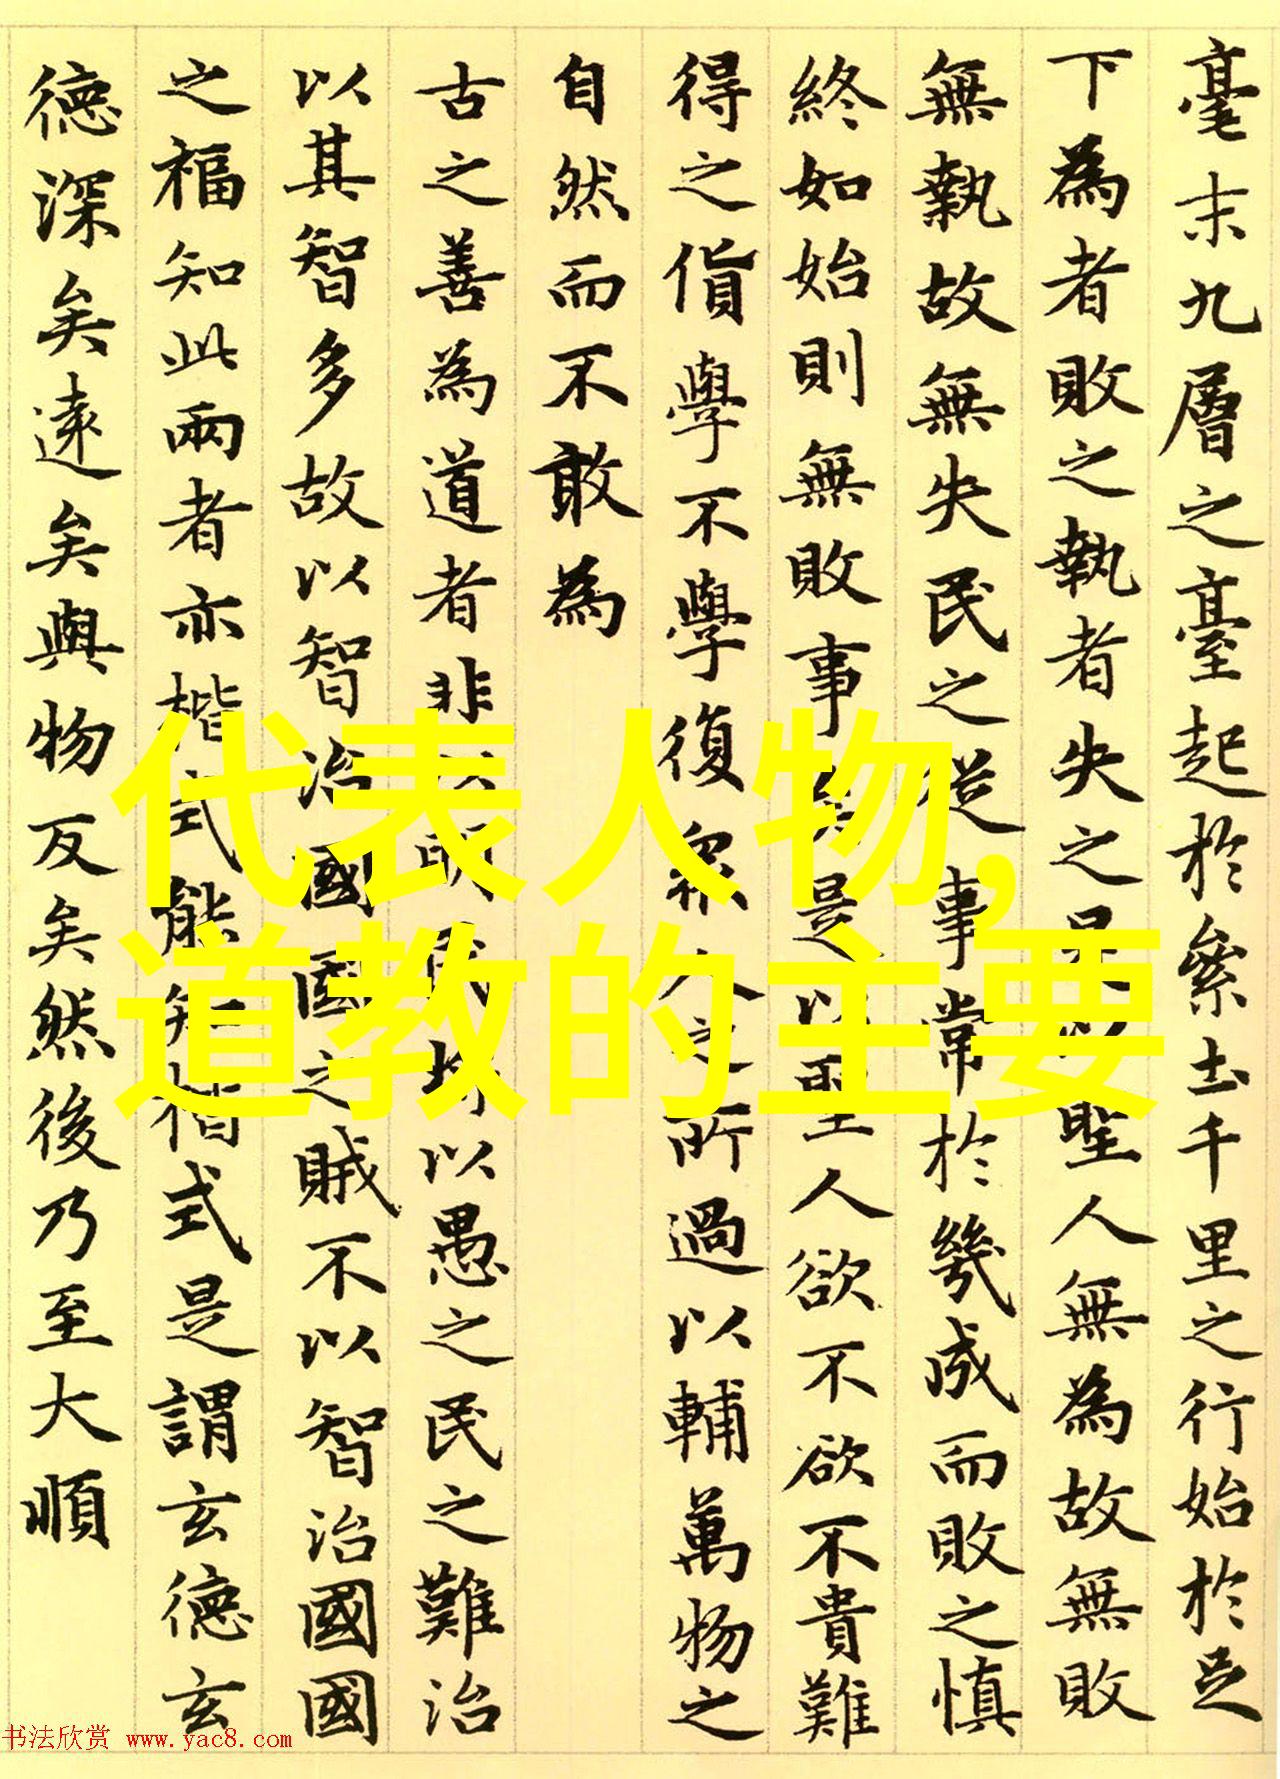 毫末九層之臺起於絫土千里之行始於足
下為者敗之執者失之是以聖人無為故無敗
無執故無失民之從事常於幾成而敗之慎
終如始則無敗事矣是以聖人欲不欲不貴難
得之貨學不學復衆人之所過以輔萬物之
自然而不敢為
古之善為道者非以明民将以愚之民之難治
以其智多故以智治國國之賊不以智治國國
之福知此兩者亦楷式能知楷式是謂玄德玄
德深矣遠矣與物反矣然後乃至大順
代表人物,
道教的主要
书法欣赏 www.yac8.com